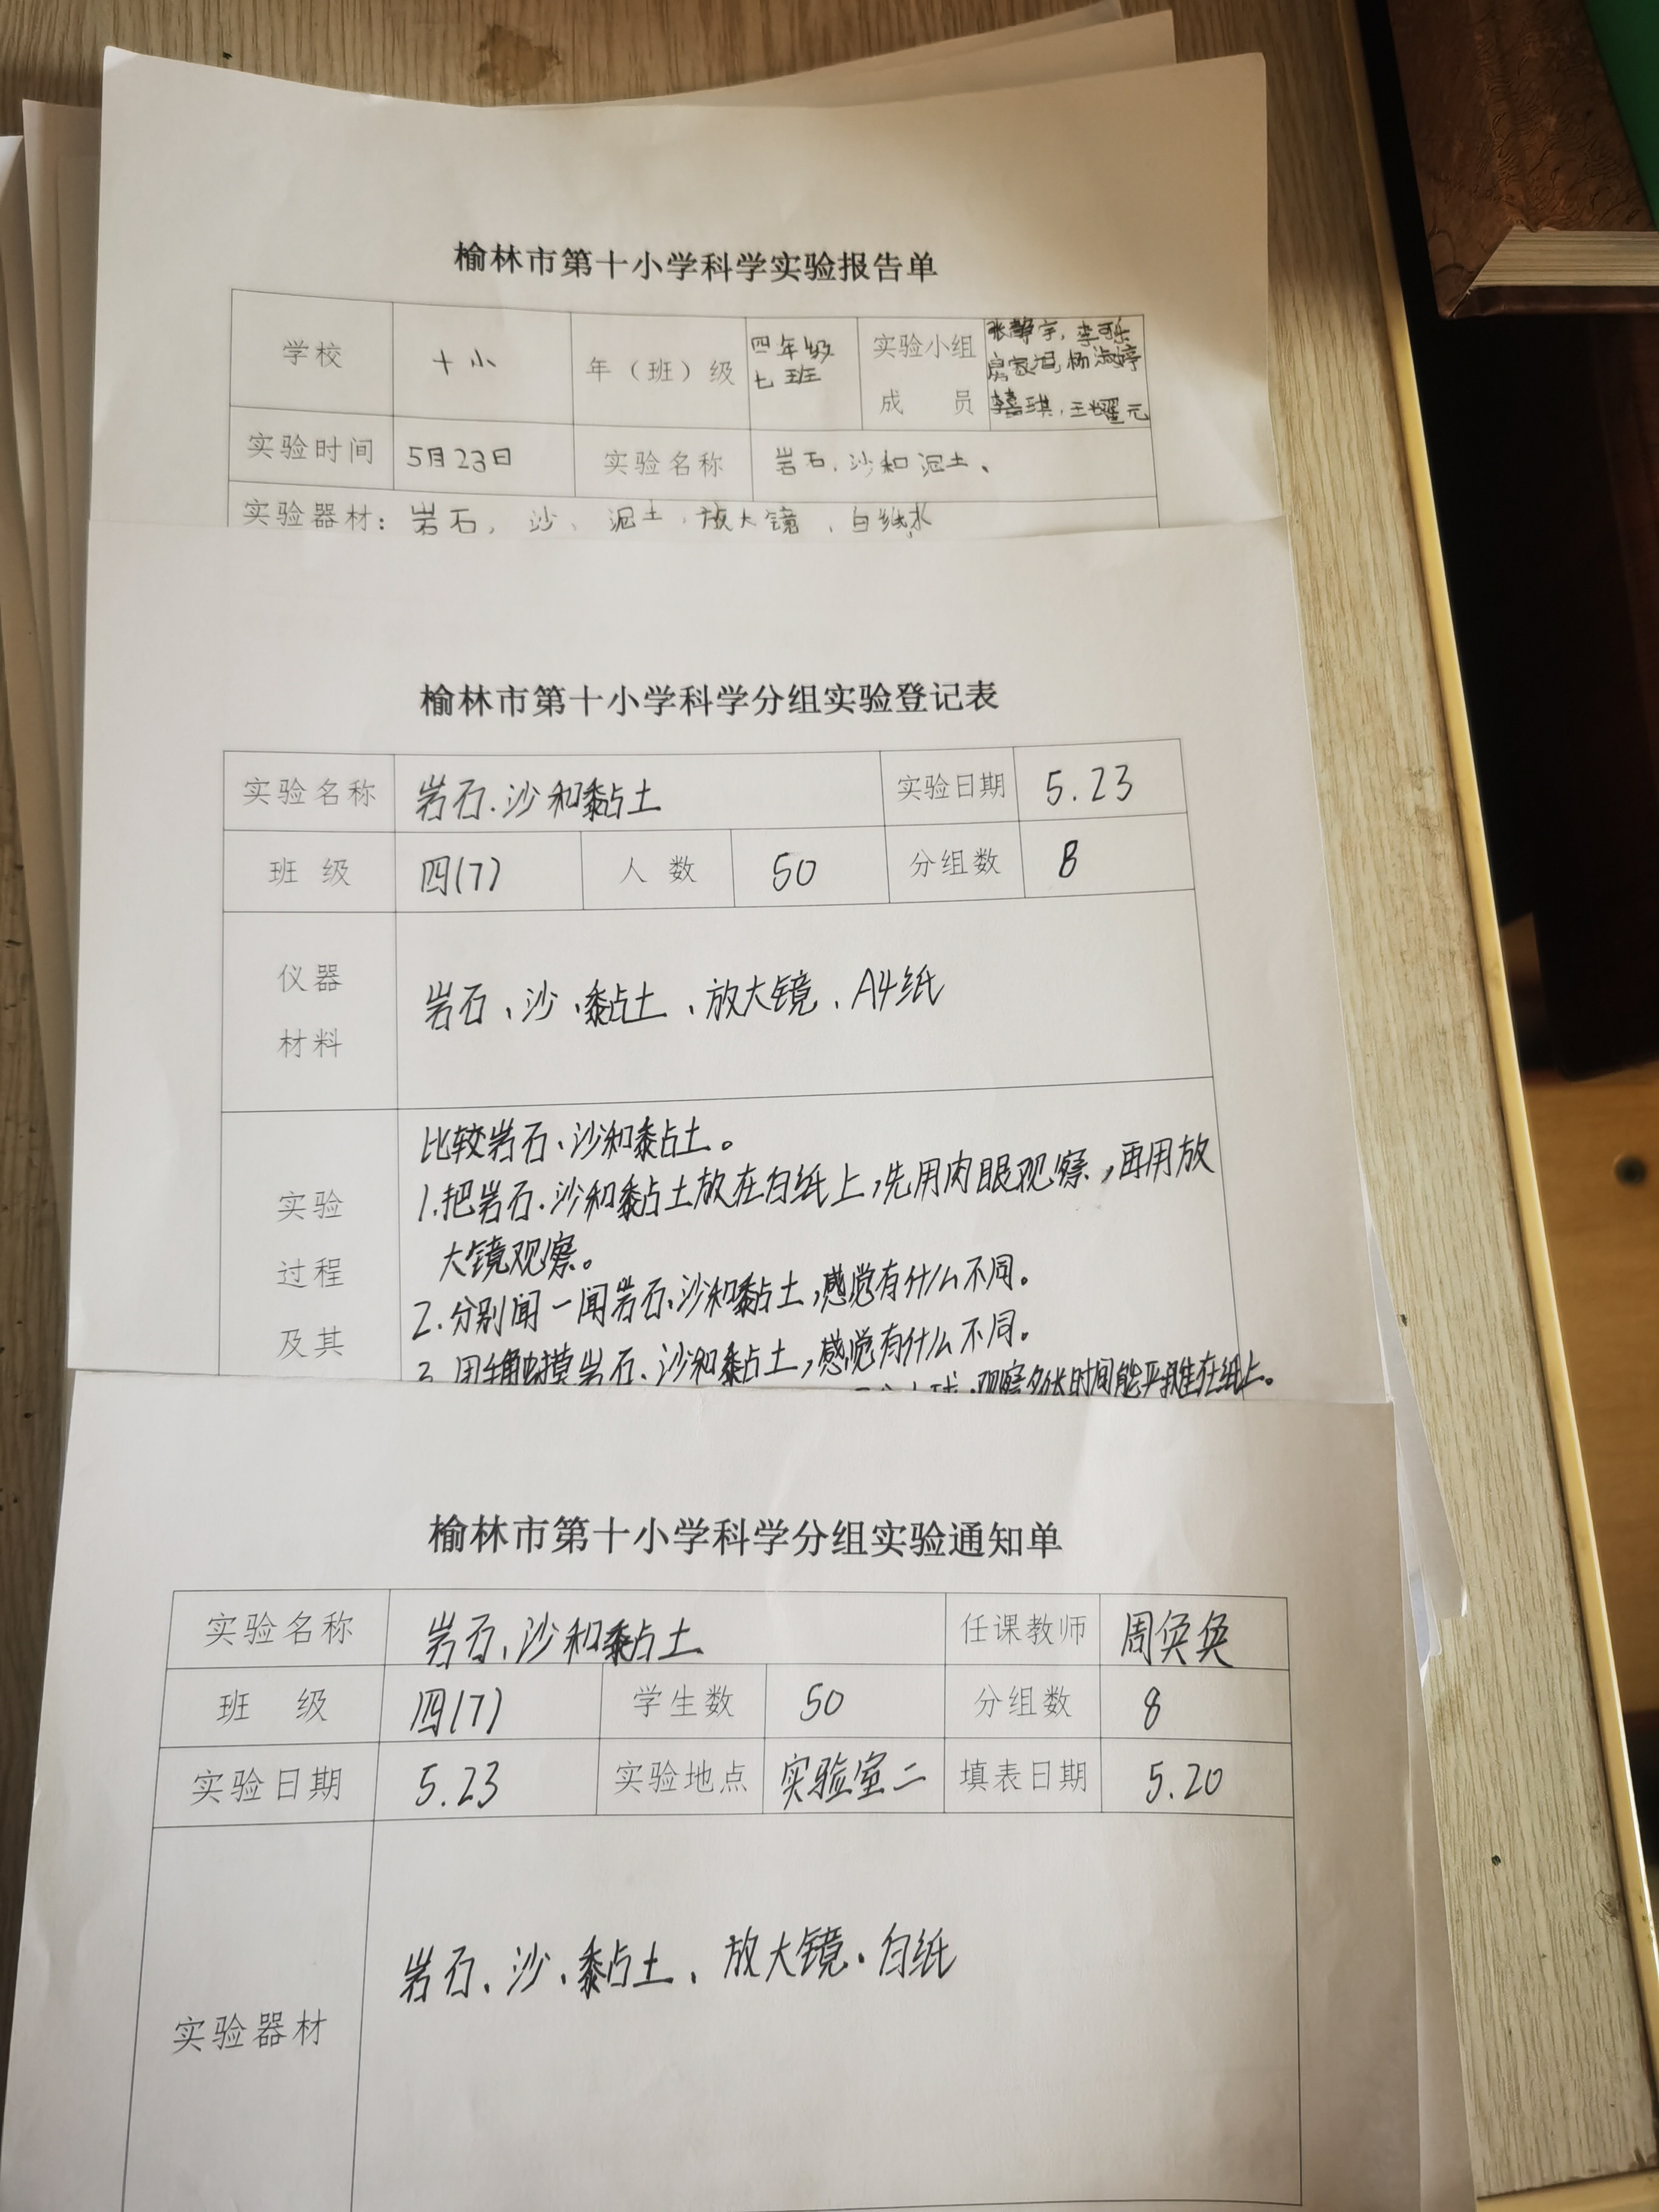 榆林市第十小学科学实验报告单
学校 十小 年（班）级 四年级七班 实验小组成员 李可乐 杨淑婷
实验时间 5月23日 实验名称 岩石、沙和泥土、
实验器材：岩石、沙、泥土、放大镜、白纸、水
榆林市第十小学科学分组实验登记表
实验名称 岩石、沙和黏土 实验日期 5.23
班级 四(7) 人数 50 分组数 8
仪器材料 岩石、沙、黏土、放大镜、A4纸
实验过程及其
比较岩石、沙和黏土。
1.把岩石、沙和黏土放在白纸上，先用肉眼观察，再用放
大镜观察。
2.分别闻一闻岩石、沙和黏土，感觉有什么不同。
3.用手触摸岩石、沙和黏土，感觉有什么不同。
观察多长时间能平摊在纸上。
榆林市第十小学科学分组实验通知单
实验名称 岩石、沙和黏土 任课教师 周奂奂
班级 四(7) 学生数 50 分组数 8
实验日期 5.23 实验地点 实验室二 填表日期 5.20
实验器材 岩石、沙、黏土、放大镜、白纸